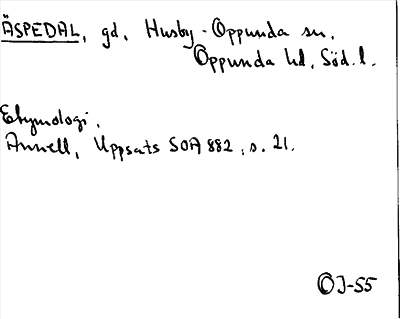 ÄSPEDAL, gd, Husby-Oppunda sn,
Oppunda hd, Söd. l.
Etymologi.
Annell, Uppsats SOA 882, s. 21.
OJ-55